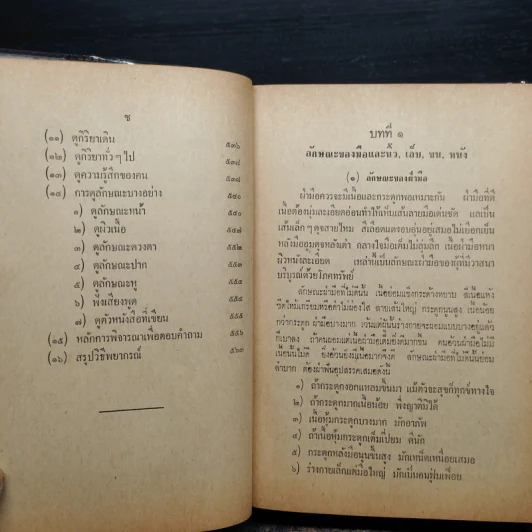 ซ
(๑๑) ดูกิริยาเดิน ๕๓๖
(๑๒) ดูกิริยาทั่ว ๆ ไป ๕๓๘
(๑๓) ดูความรู้สึกของคน ๕๓๘
(๑๔) การดูลักษณะบางอย่าง ๕๔๐
๑) ดูลักษณะหน้า ๕๔๐
๒) ดูผิวเนื้อ
๓) ดูลักษณะดวงตา ๕๕๒
๔) ดูลักษณะปาก ๕๕๓
๕) ดูลักษณะหู ๕๕๔
๖) ฟังเสียงพูด ๕๕๔
๗) ดูตัวหนังสือที่เขียน ๕๕๕
(๑๕) หลักการพิจารณาเพื่อตอบคำถาม ๕๕๖
(๑๖) สรุปวิธีพยากรณ์ ๕๖๓
บทที่ ๑
ลักษณะของมือและนิ้ว, เล็บ, ขน, หนัง
(๑) ลักษณะของฝ่ามือ
ฝ่ามือควรจะมีเนื้อและกระดูกพอเหมาะกัน ฝ่ามือที่ดี
เนื้อต้องนุ่มละเอียดอ่อนทำให้เห็นเส้นลายมือเด่นชัด และเป็น
เส้นเล็ก ๆ ดุจสายไหม สีเลือดแดงอบอุ่นอยู่เสมอไม่เยือกเย็น
หลังมืออูมดุจหลังเต่า กลางใจมือเต็มไม่ลุ่มลึก เนื้อฝ่ามือหนา
ผิวหนังละเอียด เหล่านี้เป็นลักษณะฝ่ามือของผู้ที่มีวาสนา
บริบูรณ์ด้วยโภคทรัพย์
ลักษณะฝ่ามือที่ไม่ดีนั้น เนื้อย่อมแข็งกระด้างหยาบ สีเนื้อแห้ง
ซีดไหม้เกรียมหรือดำไม่ผ่องใส ลายเส้นใหญ่ กระดูกนูนสูง เนื้อน้อย
กว่ากระดูก ฝ่ามือบางมาก เว้นแต่ผู้นั้นร่างกายจะผอมแบบบางอยู่แล้ว
ก็เบาลง ถ้าคนผอมแต่เนื้อฝ่ามือเต็มยิ่งดีมากขึ้น คนอ้วนฝ่ามือไม่มี
เนื้อนั้นไม่ดี ยิ่งอ้วนยิ่งมีเนื้อมากจึงดี ลักษณะฝ่ามือที่ไม่ดีนั้นย่อม
ลำบาก ต้องฝ่าฟันอุปสรรคเสมอดังนี้
๑) ถ้ากระดูกงอกแหลมขึ้นมา แม้ตัวจะสุขก็ทุกข์ทางใจ
๒) ถ้ากระดูกมากเนื้อน้อย พึ่งญาติมิได้
๓) เนื้อหุ้มกระดูกบางมาก มักอาภัพ
๔) ถ้าเนื้อหุ้มกระดูกเต็มเปี่ยม ดีนัก
๕) กระดูกหลังมือนูนขึ้นสูง มักเหน็ดเหนื่อยเสมอ
๖) ร่างกายเล็กแต่มือใหญ่ มักเป็นคนฟุ่มเฟือย